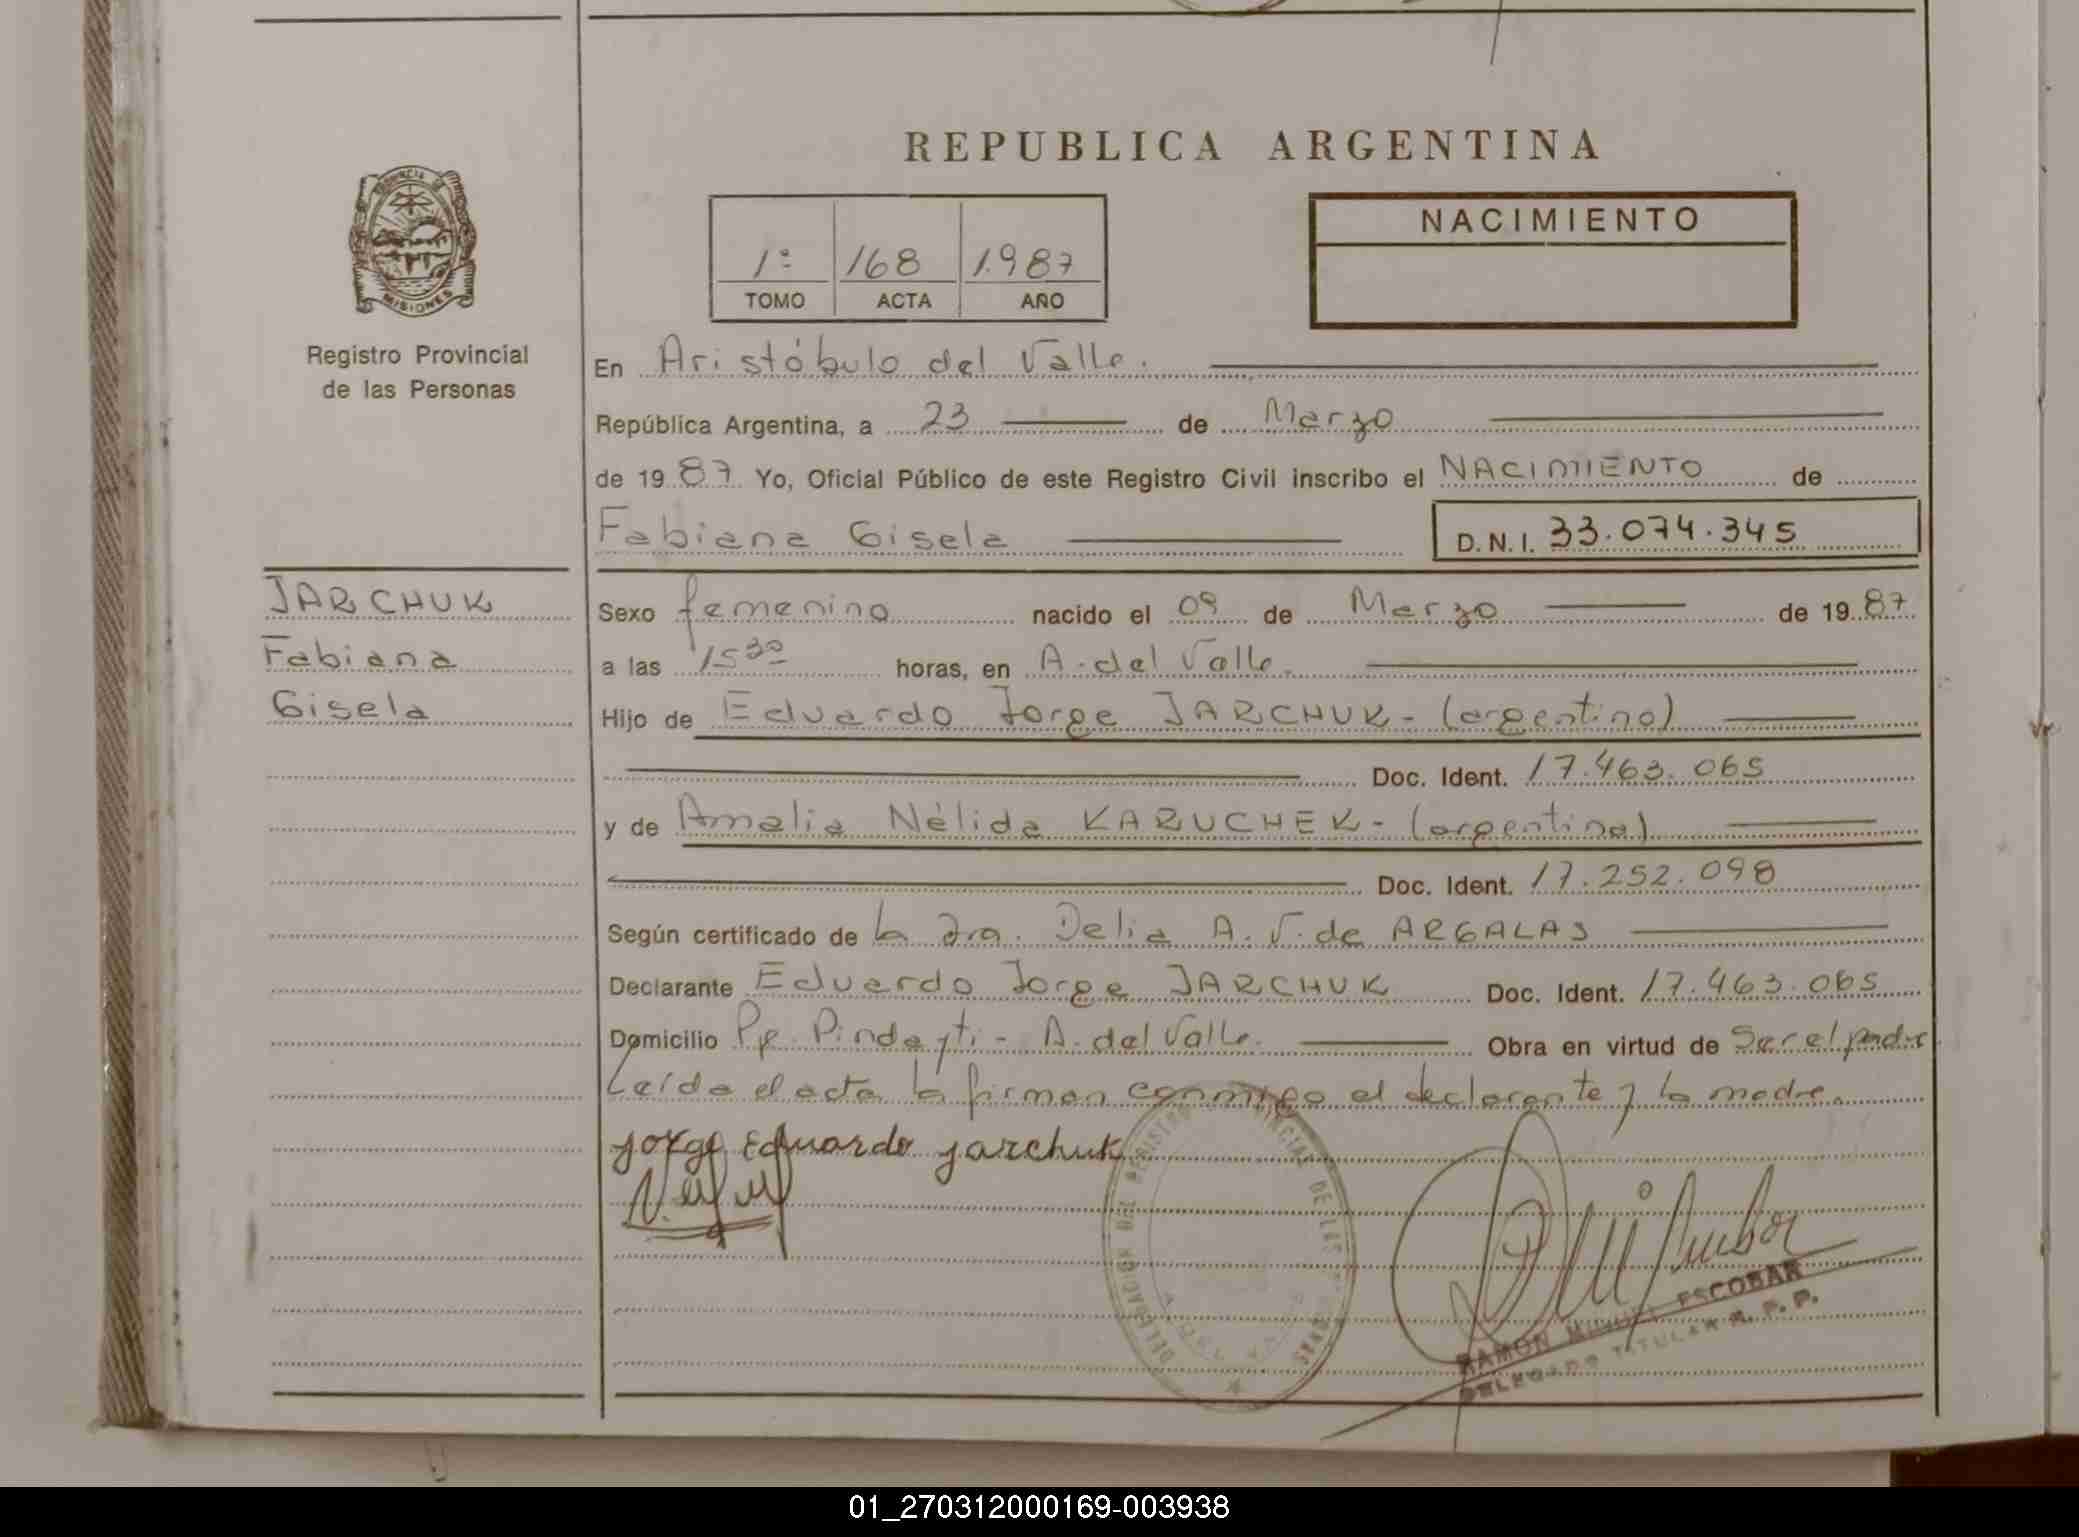 REPUBLICA ARGENTINA
PROVINCIA DE
MISIONES
Registro Provincial
de las Personas
1º 168 1987
TOMO ACTA AÑO
NACIMIENTO
En Aristóbulo del Valle.
República Argentina, a 23 de Marzo
de 1987 Yo, Oficial Público de este Registro Civil inscribo el NACIMIENTO de
Fabiana Gisela D.N.I. 33.074.345
JARCHUK
Fabiana
Gisela
Sexo femenino nacido el 09 de Marzo de 1987
a las 15 30 horas, en A. del Valle.
Hijo de Eduardo Jorge JARCHUK - (argentino)
Doc. Ident. 17.463.065
y de Amalia Nélida KARUCHEK - (argentina)
Doc. Ident. 17.252.098
Según certificado de la Dra. Delia A. V. de ARGALAS
Declarante Eduardo Jorge JARCHUK Doc. Ident. 17.463.065
Domicilio Pje. Pindayti - A. del Valle. Obra en virtud de Ser el padre
Leída el acta la firman conmigo el declarante y la madre.
Jorge Eduardo Jarchuk
DELEGACION DEL REGISTRO PROVINCIAL DE LAS PERSONAS
RAMON MIGUEL ESCOBAR
DELEGADO TITULAR R. P. P.
01_270312000169-003938